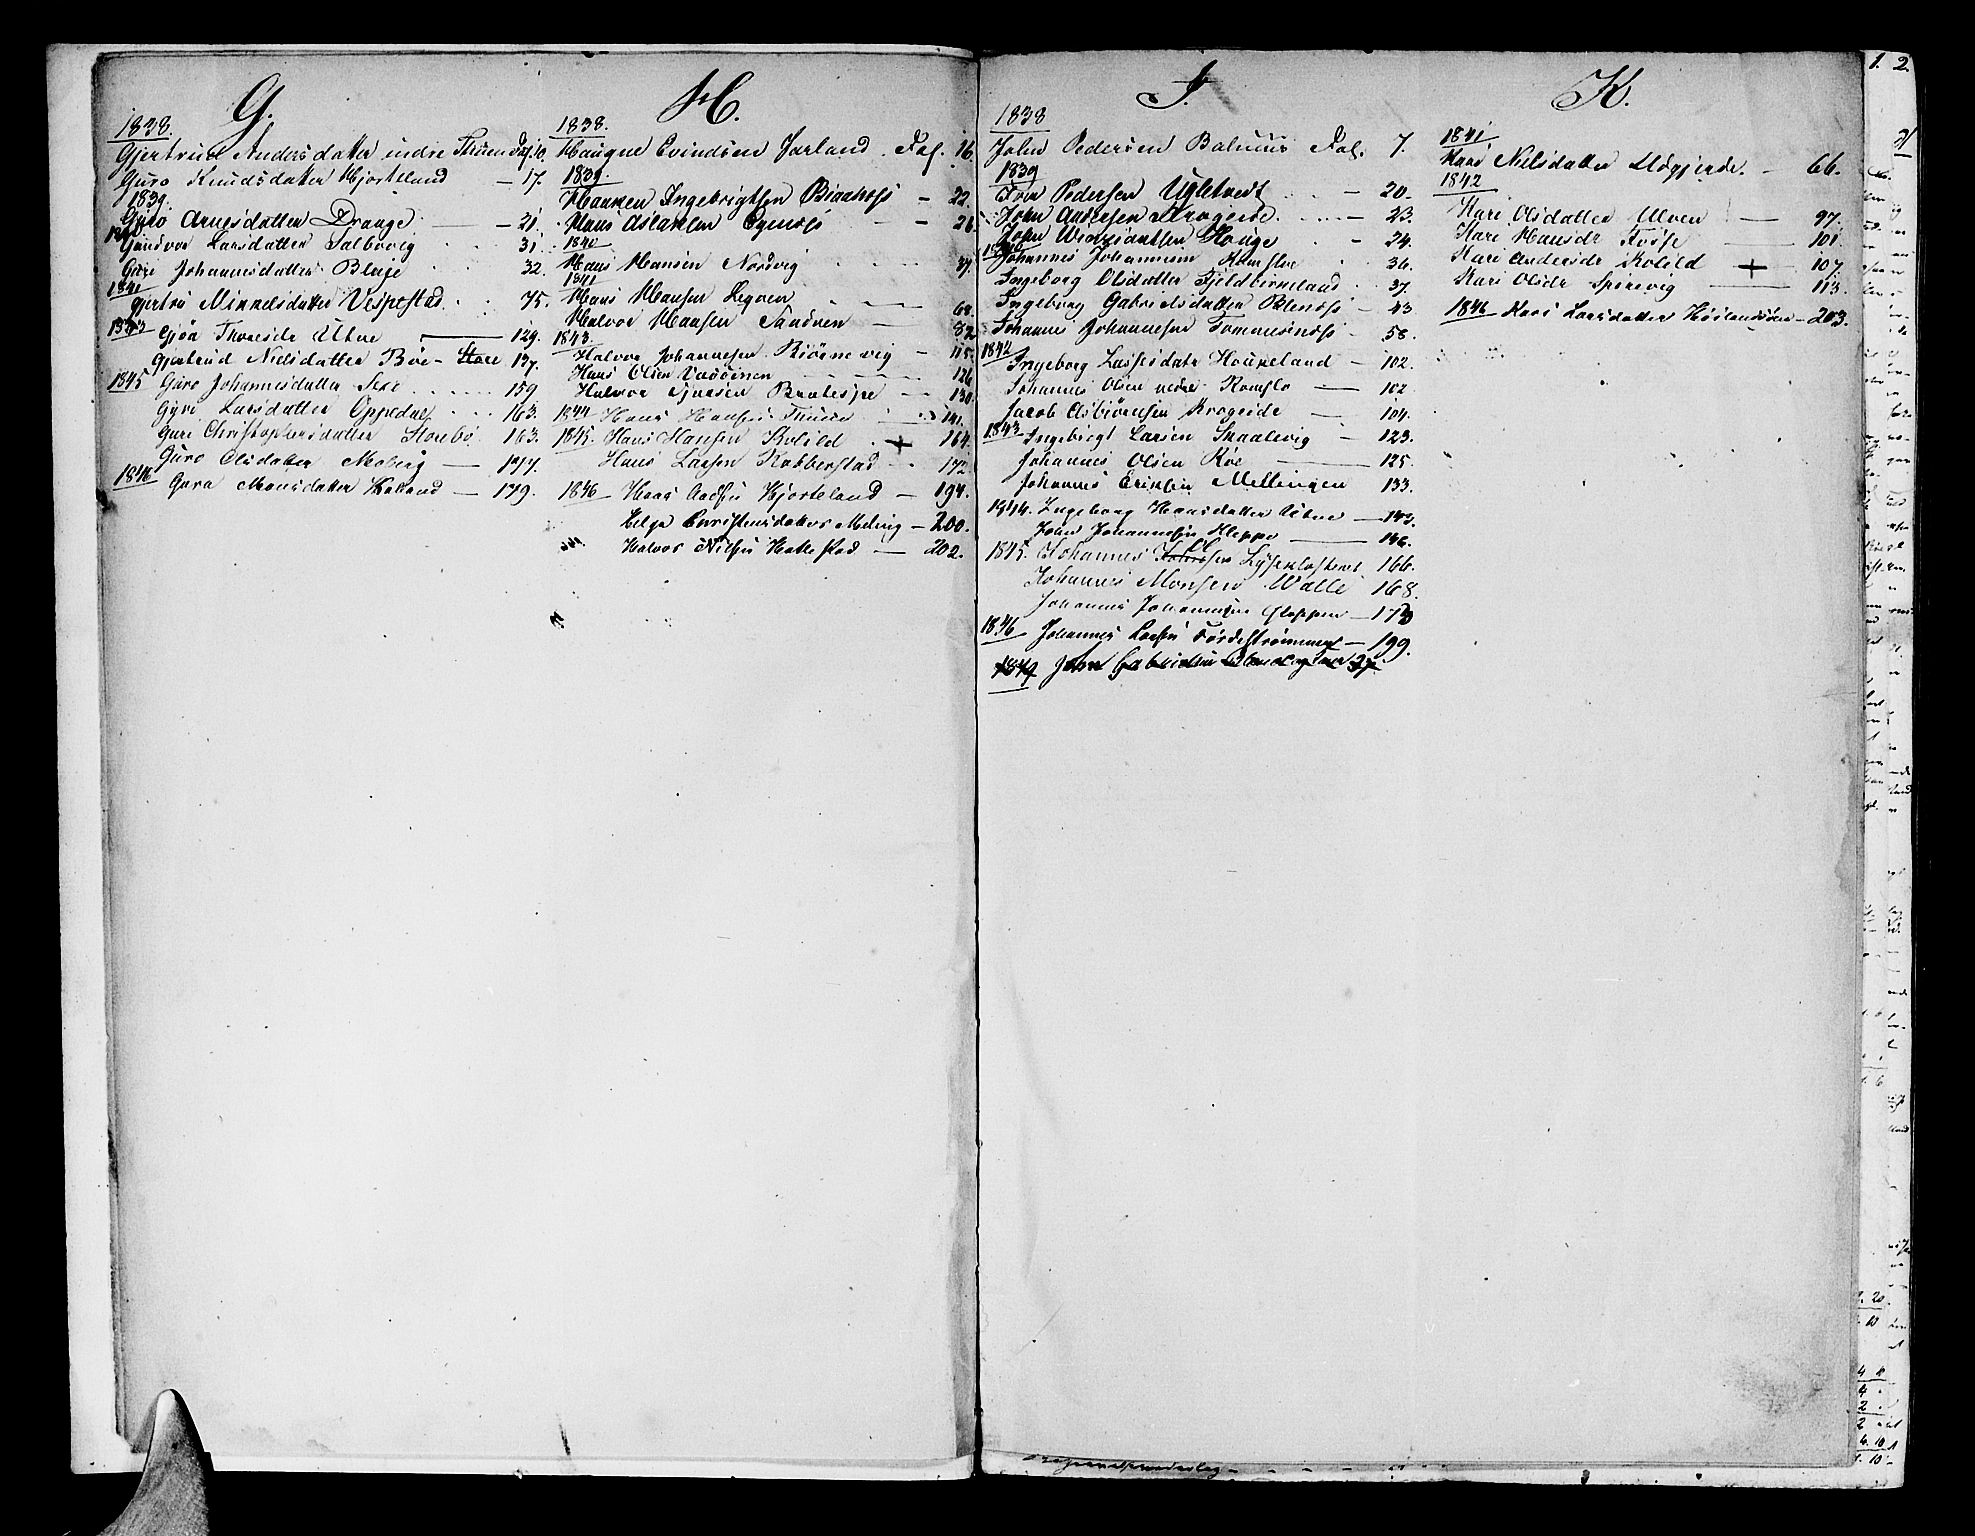 G.
1838.
Gjertrud Andersdatter indre Thuen Fol. 10.
Guro Knudsdatter Hjorteland — 17.
1839.
Guro Arnesdatter Drange — 21.
1840
Gundvor Larsdatter Salbøvig 31.
Guri Johannesdatter Blage 32.
1841
Gjertru Mikkelsdatter Vespestad 75.
1843 Gjøa Thoresdr Utne — 129.
Gjertrud Nilsdatter Bøe 137.
1845 Guro Johannesdatter Sexe 159
Gyri Larsdatter Oppedal 163.
Guri Christophersdatter Storebø 163.
Guro Olsdatter Moberg — 177.
1846 Guro Monsdatter Hatland — 179.
H.
1838.
Haugne Evindsen Jarland Fol. 16.
1839.
Haaken Ingebrigtsen Biaanæss — 22.
Hans Aslaksen Egenæss — 26.
1840
Hans Hansen Nordvig 39.
1841
Hans Hansen Leqven
Halvor Hansen Sandven — 82.
1843.
Halvor Johannesen Biørnevig — 115.
Hans Olsen — 126
Halvor Sjursen — 130.
1844 Hans Hansen Thuen 141.
1845. Hans Hansen Kolild + 164.
Hans Larsen Kobberstad 172.
1846 Hans Hjorteland — 194.
Helge Christensdatter Melvig — 200.
Halvor Nilsen Hattestad — 202.
I.
1838
John Pedersen Balmus Fol. 7.
1839
Iver Pedersen Ugletvedt — 20.
John Andersen Krogeide — 23.
John Hauge — 24.
1840
Johannes Johannesen Romsloe 36.
Ingeborg Olsdatter Fjeldberneland 37.
Ingeborg Gabrielsdatter Oklenæss — 43.
Johannes Johannesen Tommesnæss 58.
1842
Ingeborg Lassesdatr Houkeland — 102.
Johannes Olsen nedre Romslo — 102.
Jacob Asbiørnsen Krogeide — 104.
1843 Ingebrigt Larsen Skaalevig — 123.
Johannes Olsen Røe — 125.
Johannes Eriksen Mellingen 133.
1844. Ingeborg Hansdatter Utne — 143.
John Johannesen Kleppe — 146.
1845. Johannes Lysekloster 166.
Johannes Monsen Walle 168.
Johannes Johannesen Gloppen — 173
1846 Johannes Larsen Førdestrømmen — 199.
1849 John Gabrielsen
K.
1841
Kari Nilsdatter Ødegjerde — 66.
1842
Kari Olsdatter Ulven — 97.
Kari Hansdr Tøsse — 101.
Kari Andersdr Kolild + 107.
Kari Olsdr Spirevig — 113.
1846 Kari Larsdatter Høilandsøen — 203.